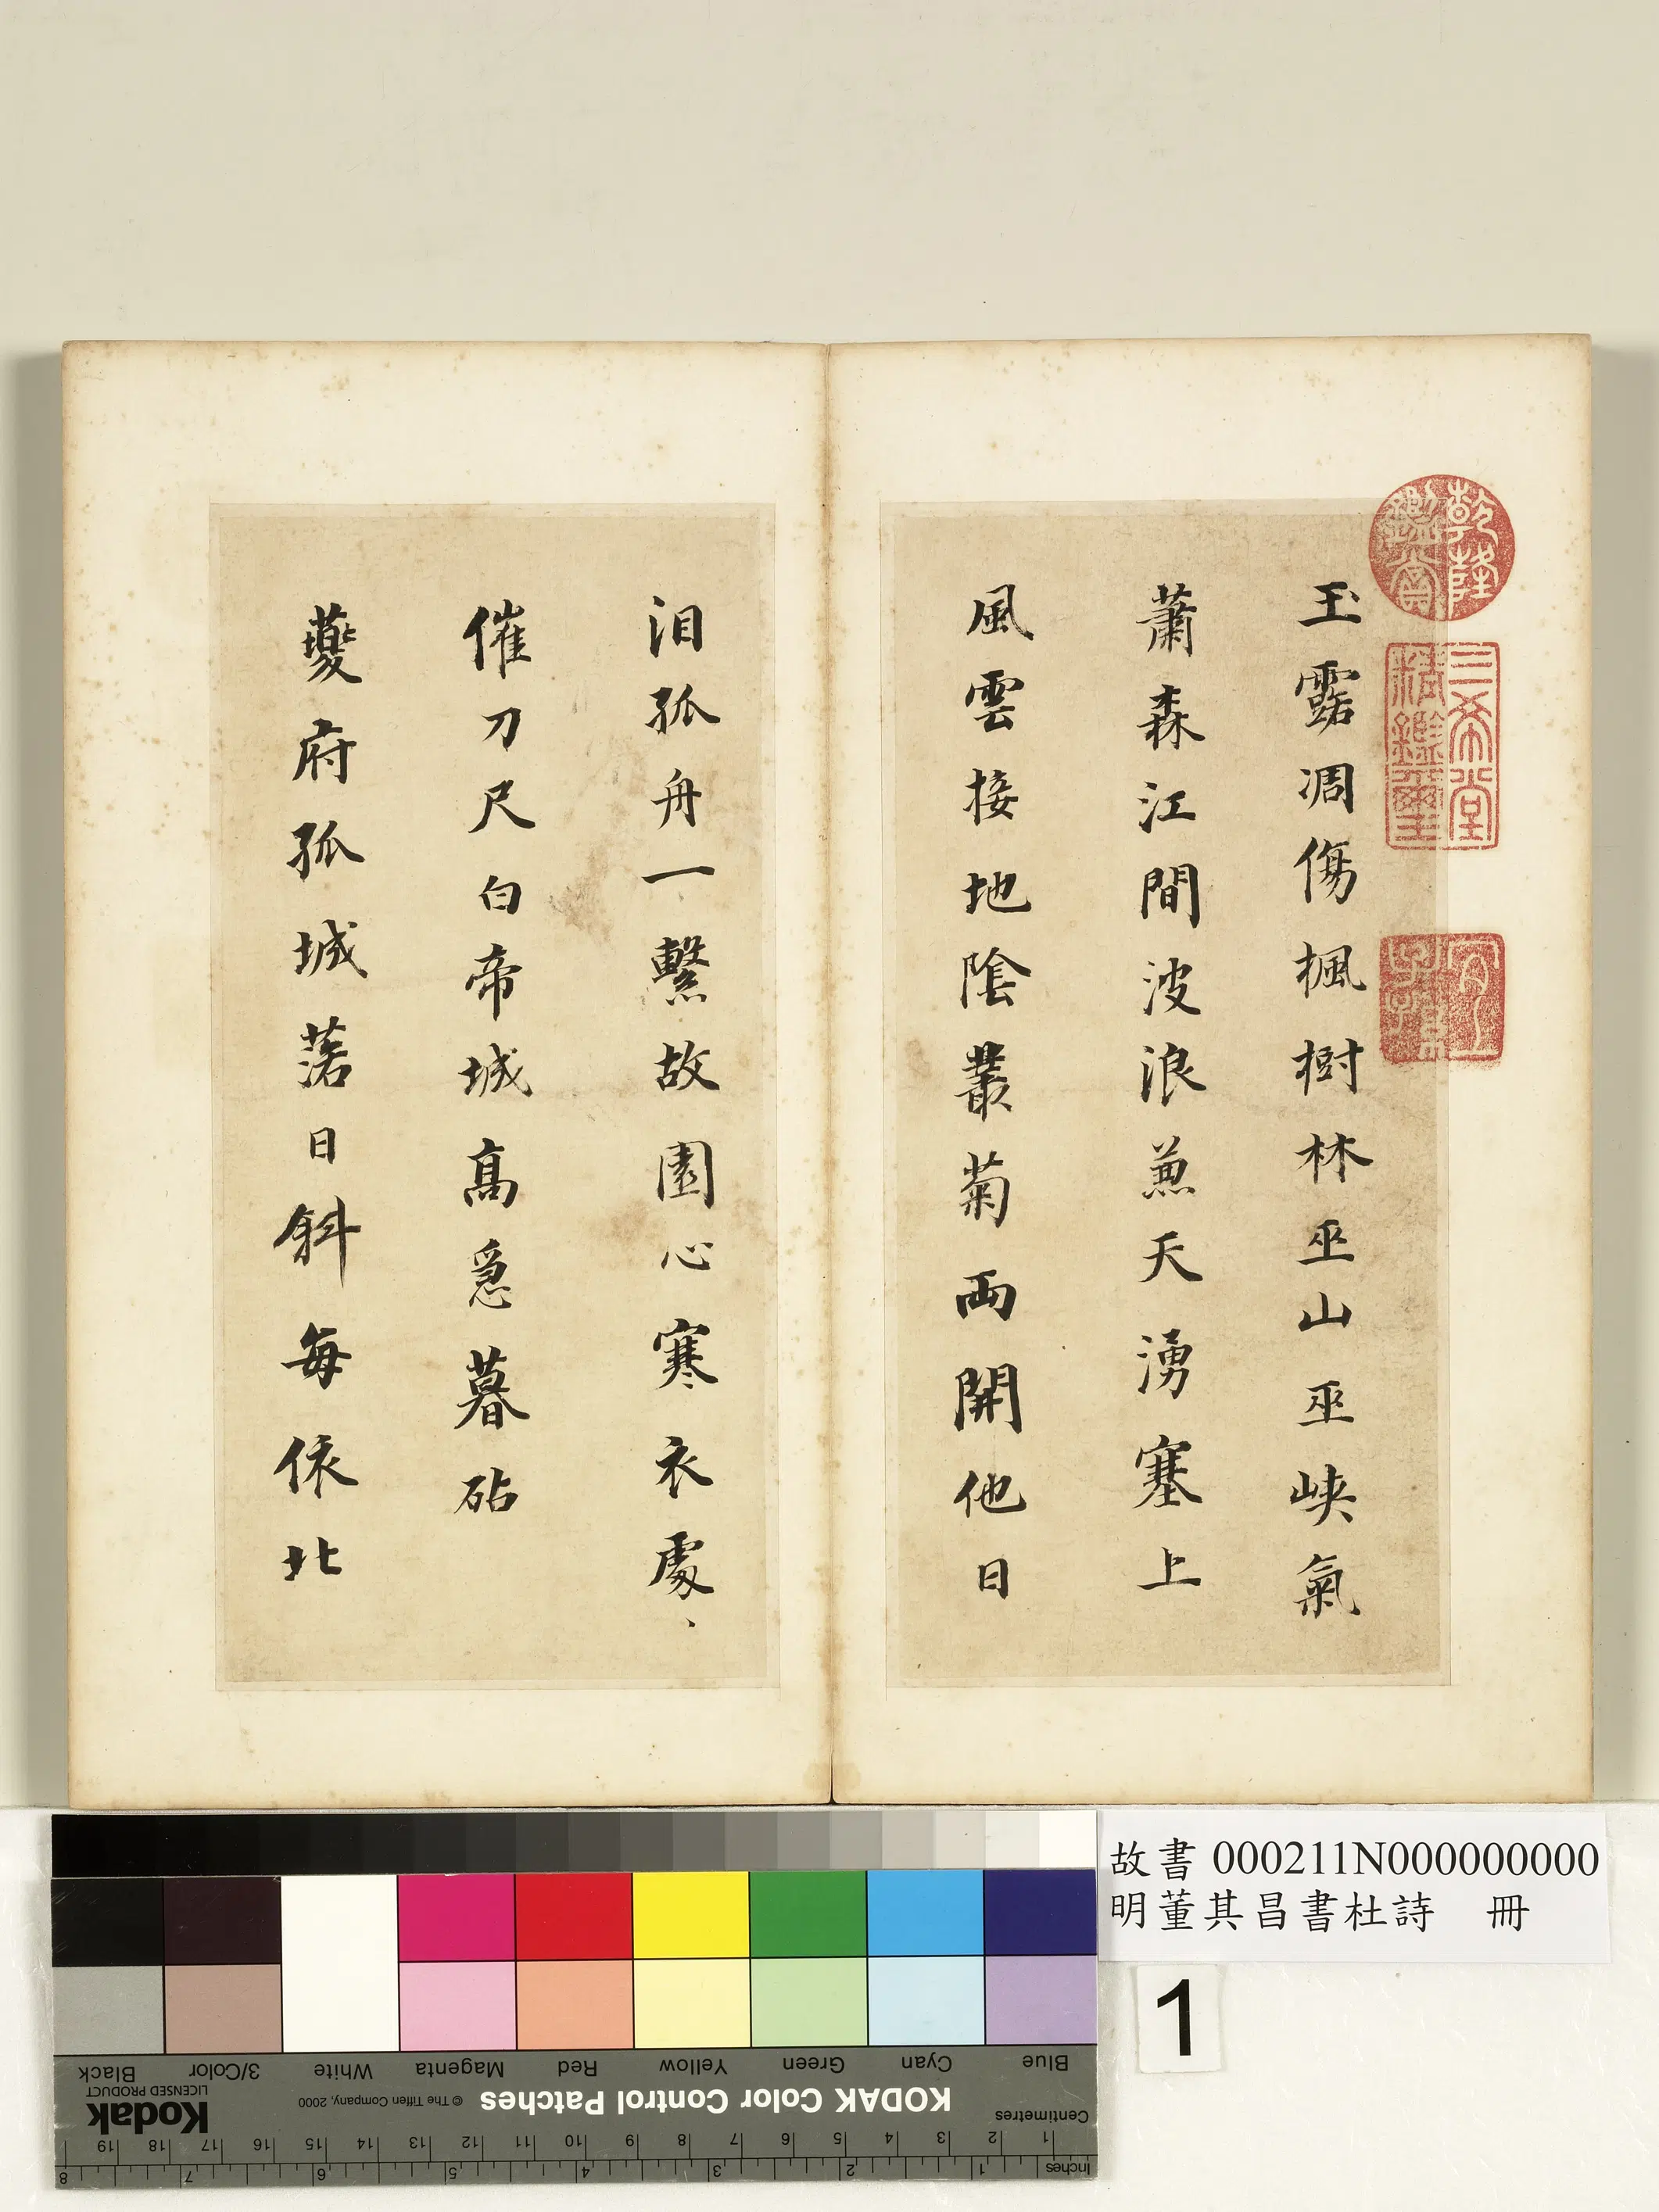 玉露凋傷楓樹林巫山巫峽氣
蕭森江間波浪兼天湧塞上
風雲接地陰叢菊兩開他日
泪孤舟一繫故園心寒衣處、
催刀尺白帝城高急暮砧
夔府孤城落日斜每依北
乾隆
鑑賞
三希堂
精鑑璽
宜子孫
故書 000211N000000000
明董其昌書杜詩 冊
1
Blue
Cyan
Green
Yellow
Red
Magenta
White
3/Color
Black
KODAK Color Control Patches
© The Tiffen Company, 2000
Kodak
LICENSED PRODUCT
Centimetres
1 2 3 4 5 6 7 8 9 10 11 12 13 14 15 16 17 18 19
Inches
1 2 3 4 5 6 7 8